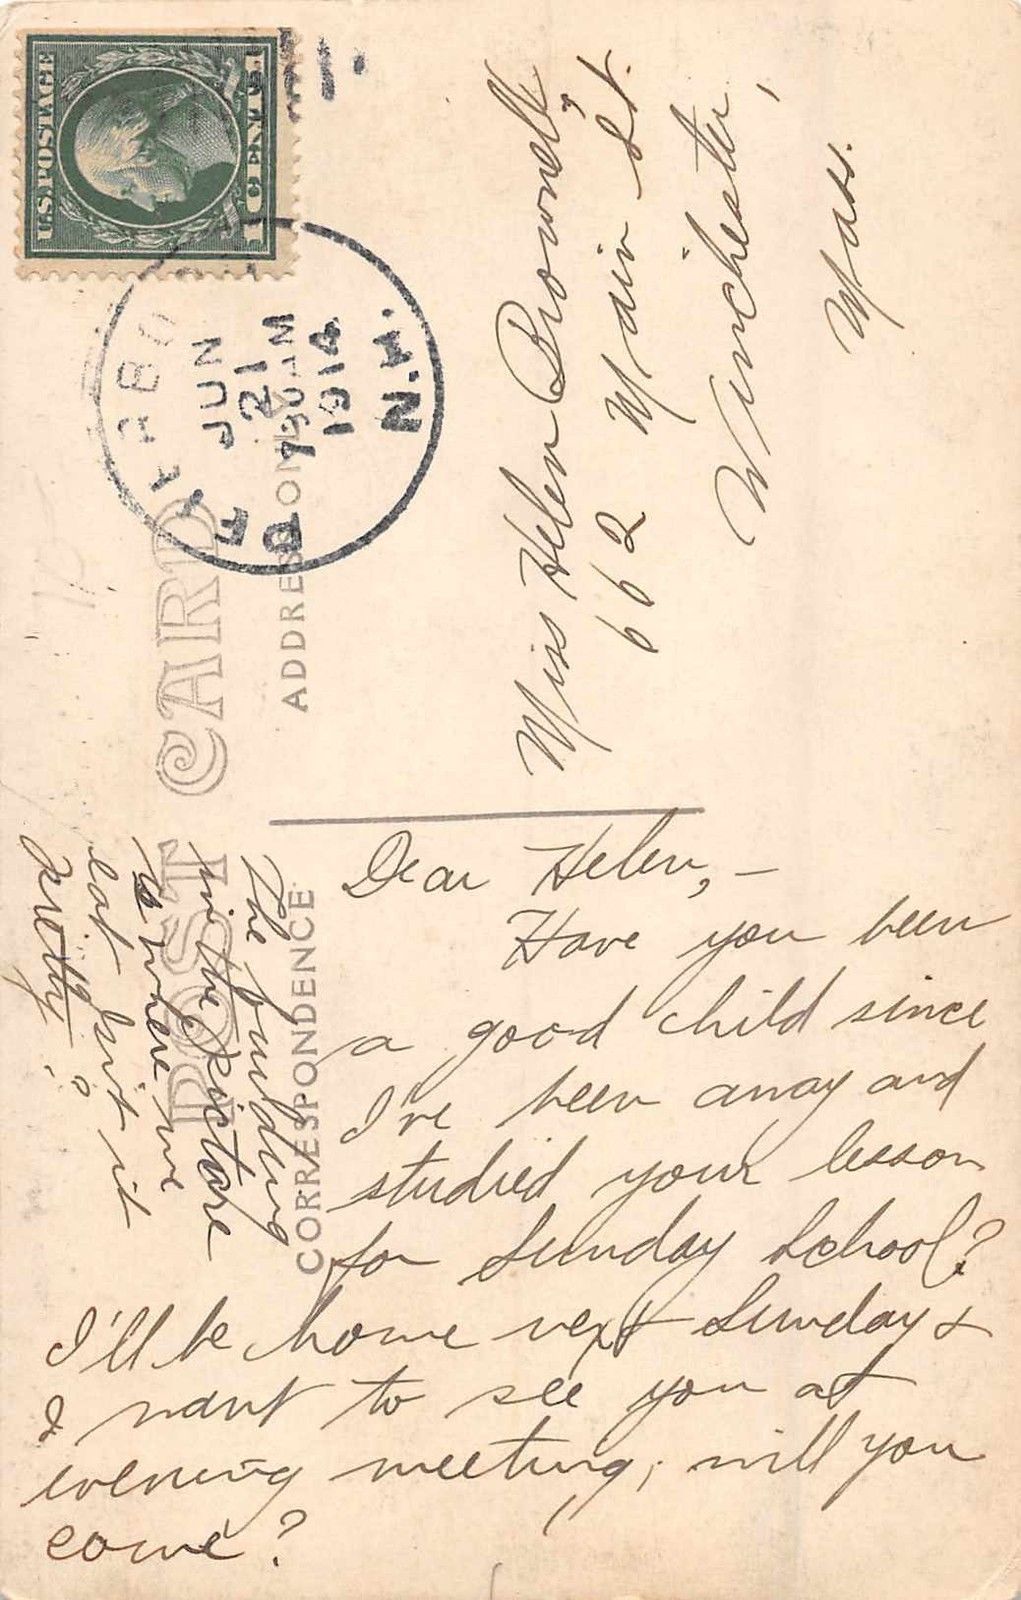 U.S. POSTAGE
1 CENT 1
JUN
21
730 AM
1914
N.H.
POST CARD
ADDRESS ONLY
CORRESPONDENCE
Miss Helen Brownell,
662 Main St.
Winchester,
Mass.
Dear Helen, –
Have you been
a good child since
I've been away and
studied your lesson
for Sunday School?
I'll be home next Sunday &
I want to see you at
evening meeting, will you
come?
The building
in the picture
is where we
eat. Isn't it
pretty?